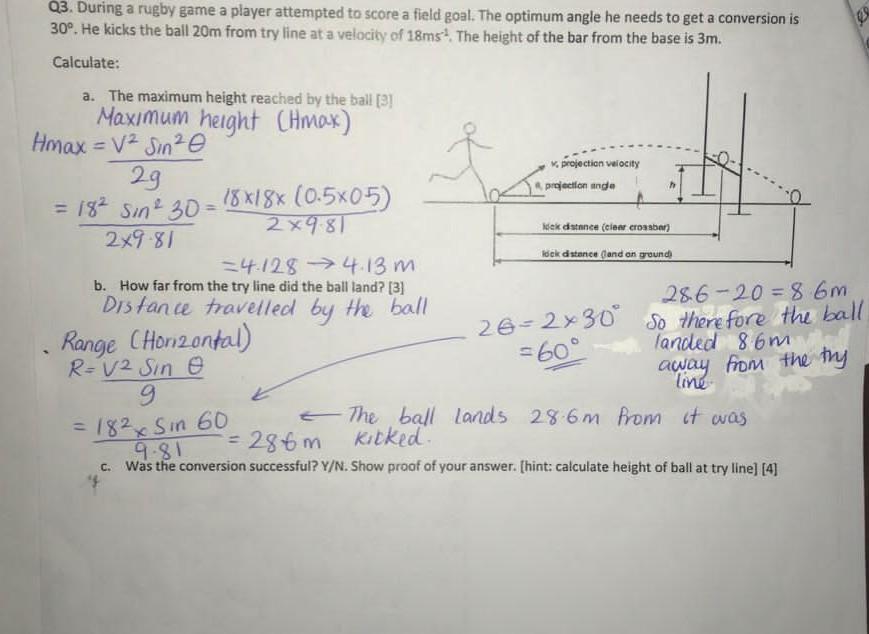 Q3. During a rugby game a player attempted to score a field goal. The optimum angle he needs to get a conversion is
30°. He kicks the ball 20m from try line at a velocity of 18ms⁻¹. The height of the bar from the base is 3m.
Calculate:
a. The maximum height reached by the ball [3]
Maximum height (Hmax)
Hmax = V² Sin²θ
2g
= 18² Sin² 30 = 18x18x (0.5x05)
2x9.81 2x9.81
=4.128 → 4.13m
v, projection velocity
θ, projection angle
h
kick distance (clear crossbar)
kick distance (land on ground)
b. How far from the try line did the ball land? [3]
Distance travelled by the ball
Range (Horizontal)
R= V² Sin θ
g
2θ = 2x30°
=60°
28.6-20 = 8.6m
So therefore the ball
landed 8.6m
away from the try
line.
= 18² x Sin 60
9.81 = 28.6m
← The ball lands 28.6m from it was
kicked.
c. Was the conversion successful? Y/N. Show proof of your answer. [hint: calculate height of ball at try line] [4]